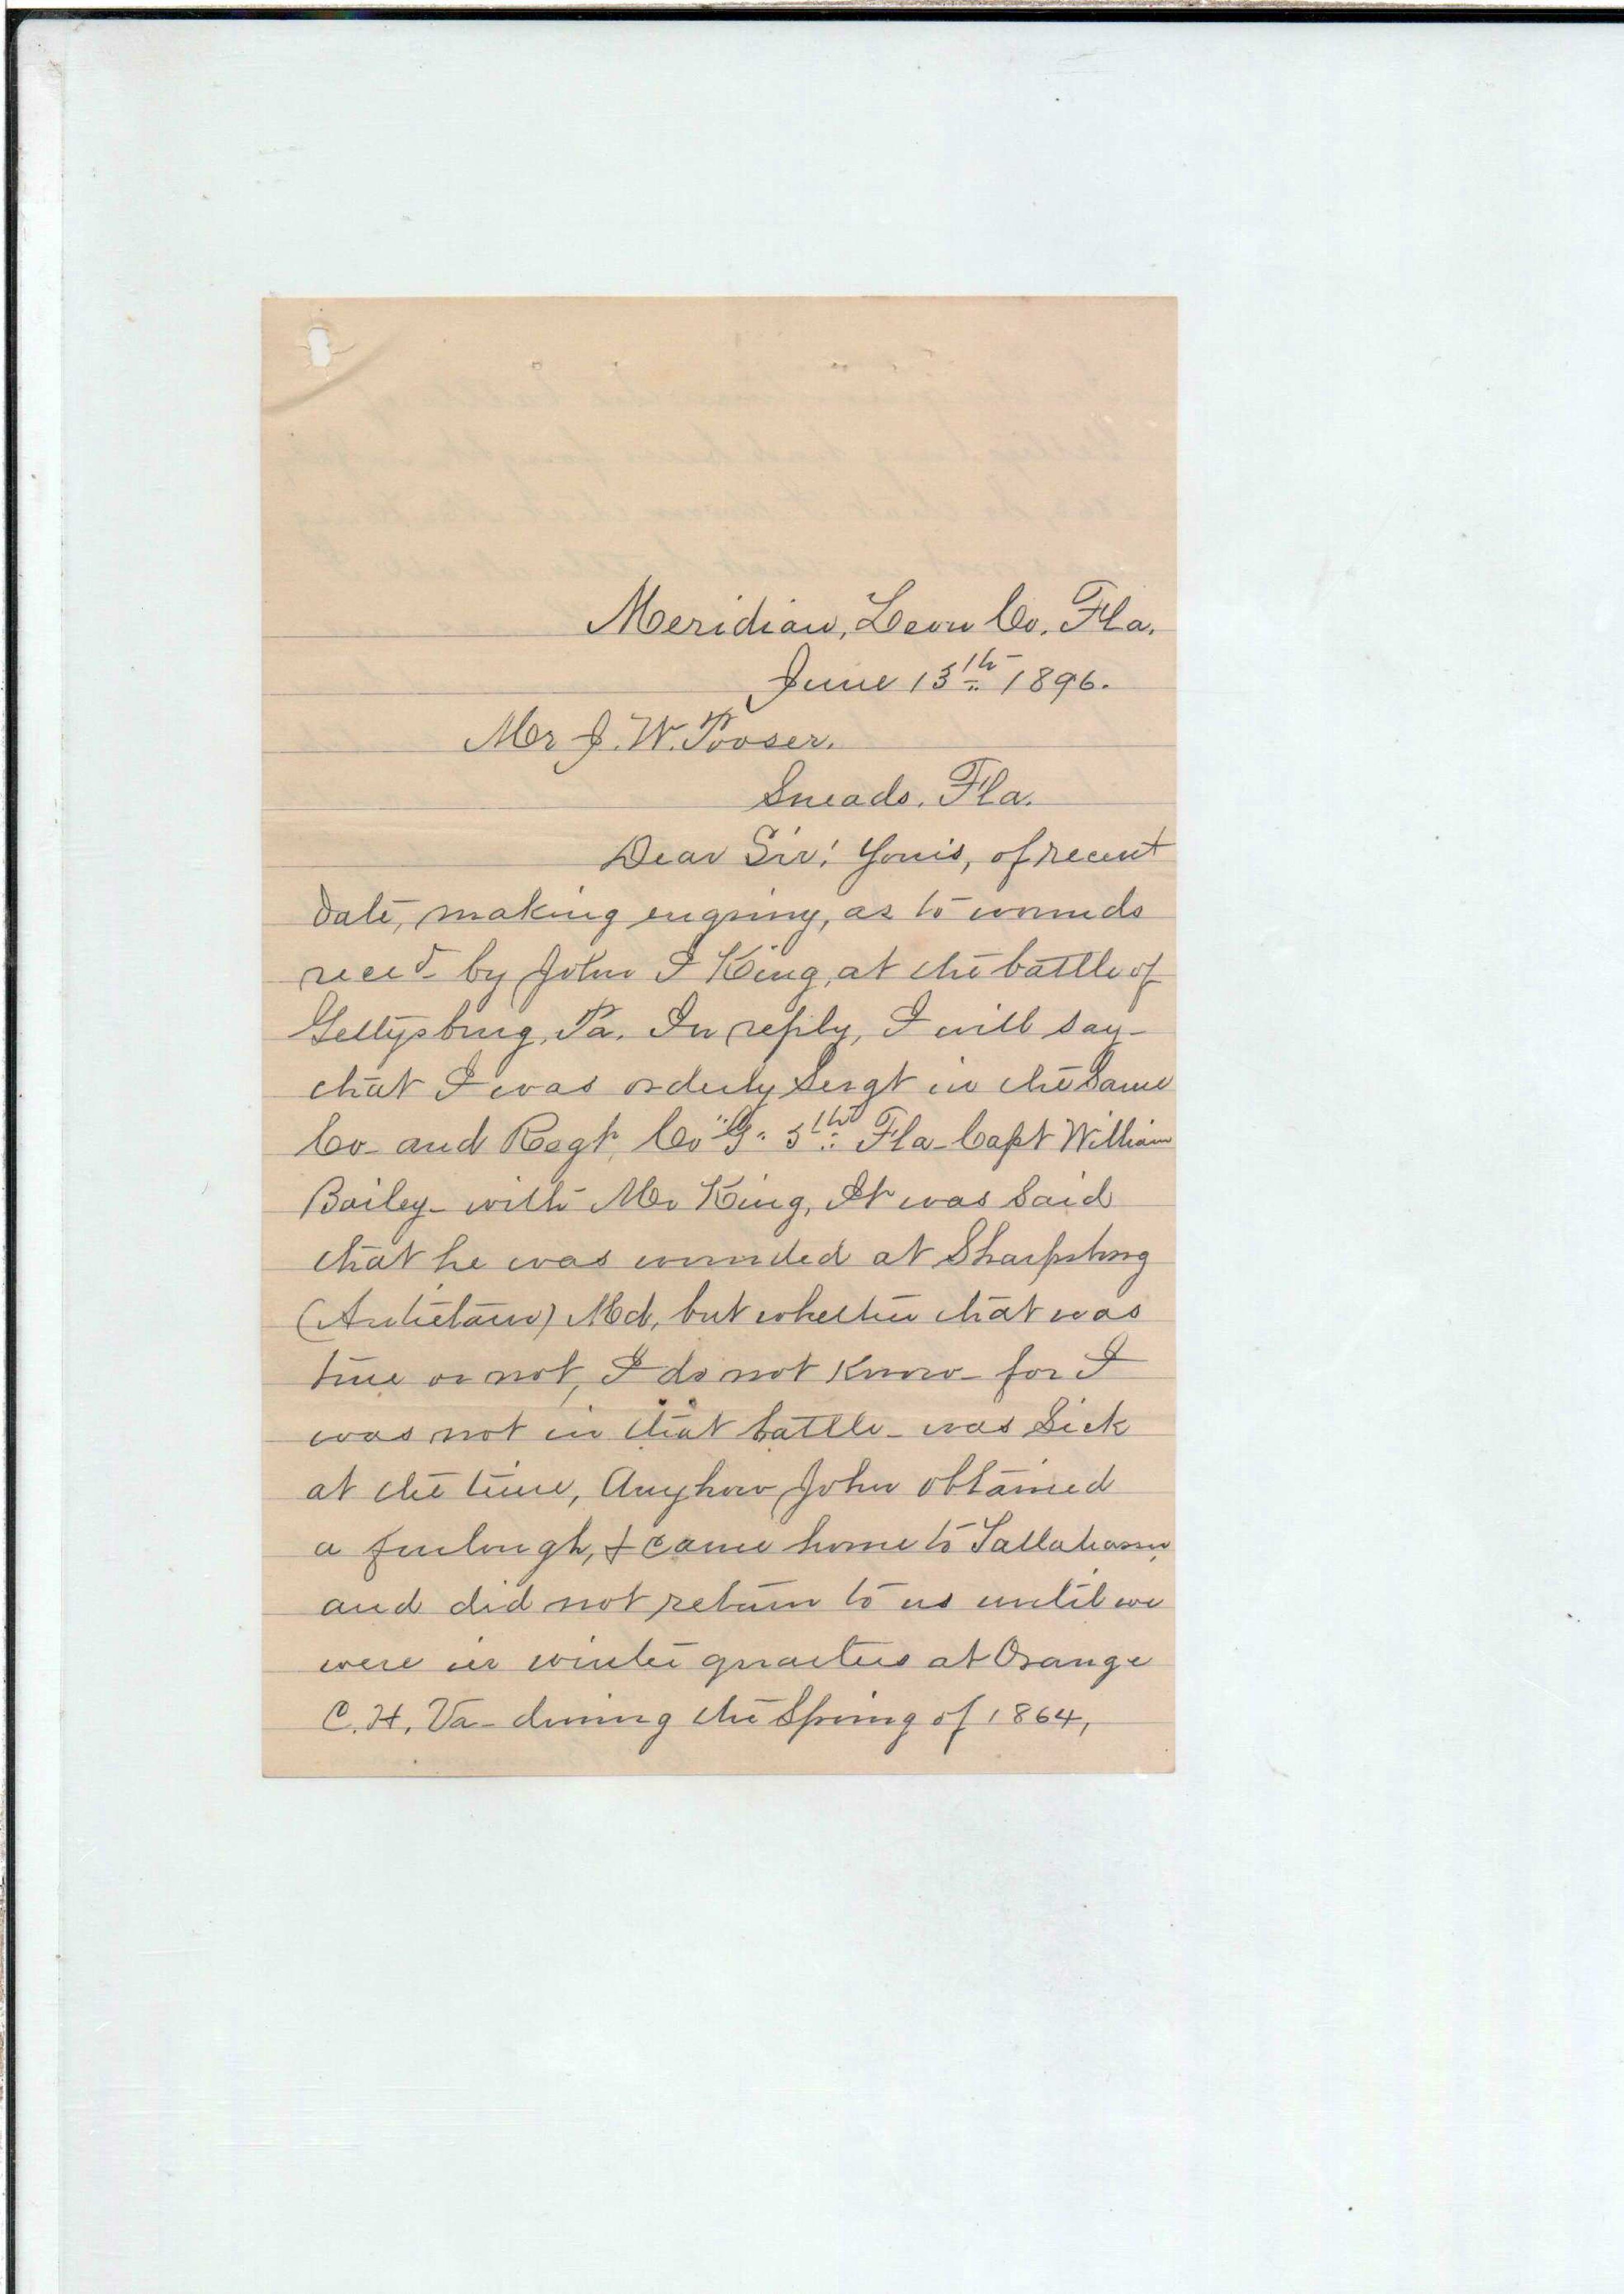 Meridian, Leon Co. Fla.
June 13th 1896.
Mr J. W. Pooser.
Sneads. Fla.
Dear Sir! Yours, of recent
date, making enquiry, as to wounds
recd by John I King, at the battle of
Gettysburg, Pa. In reply, I will say-
that I was orderly Sergt in the Same
Co- and Regt, Co "G" 5th Fla- Capt William
Bailey- with Mr King, It was Said
that he was wounded at Sharpsburg
(Antietam) Md, but whether that was
true or not, I do not Know- for I
was not in that battle- was Sick
at the time, Anyhow John obtained
a furlough, & came home to Tallahassee,
and did not return to us until we
were in winter quarters at Orange
C. H, Va- during the Spring of 1864,